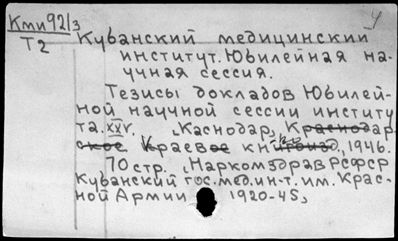 Кми92/3
Т2
Кубанский медицинский
институт. Юбилейная на-
учная сессия.
Тезисы докладов Юбилей-
ной научной сессии институ
та. XXV. Каснодар, Краснодар
ское Краевое кн , 1946.
70 стр. , Наркомздрав РСФСР
Кубанский гос. мед. ин-т. им. Крас-
ной Армии 1920-45,